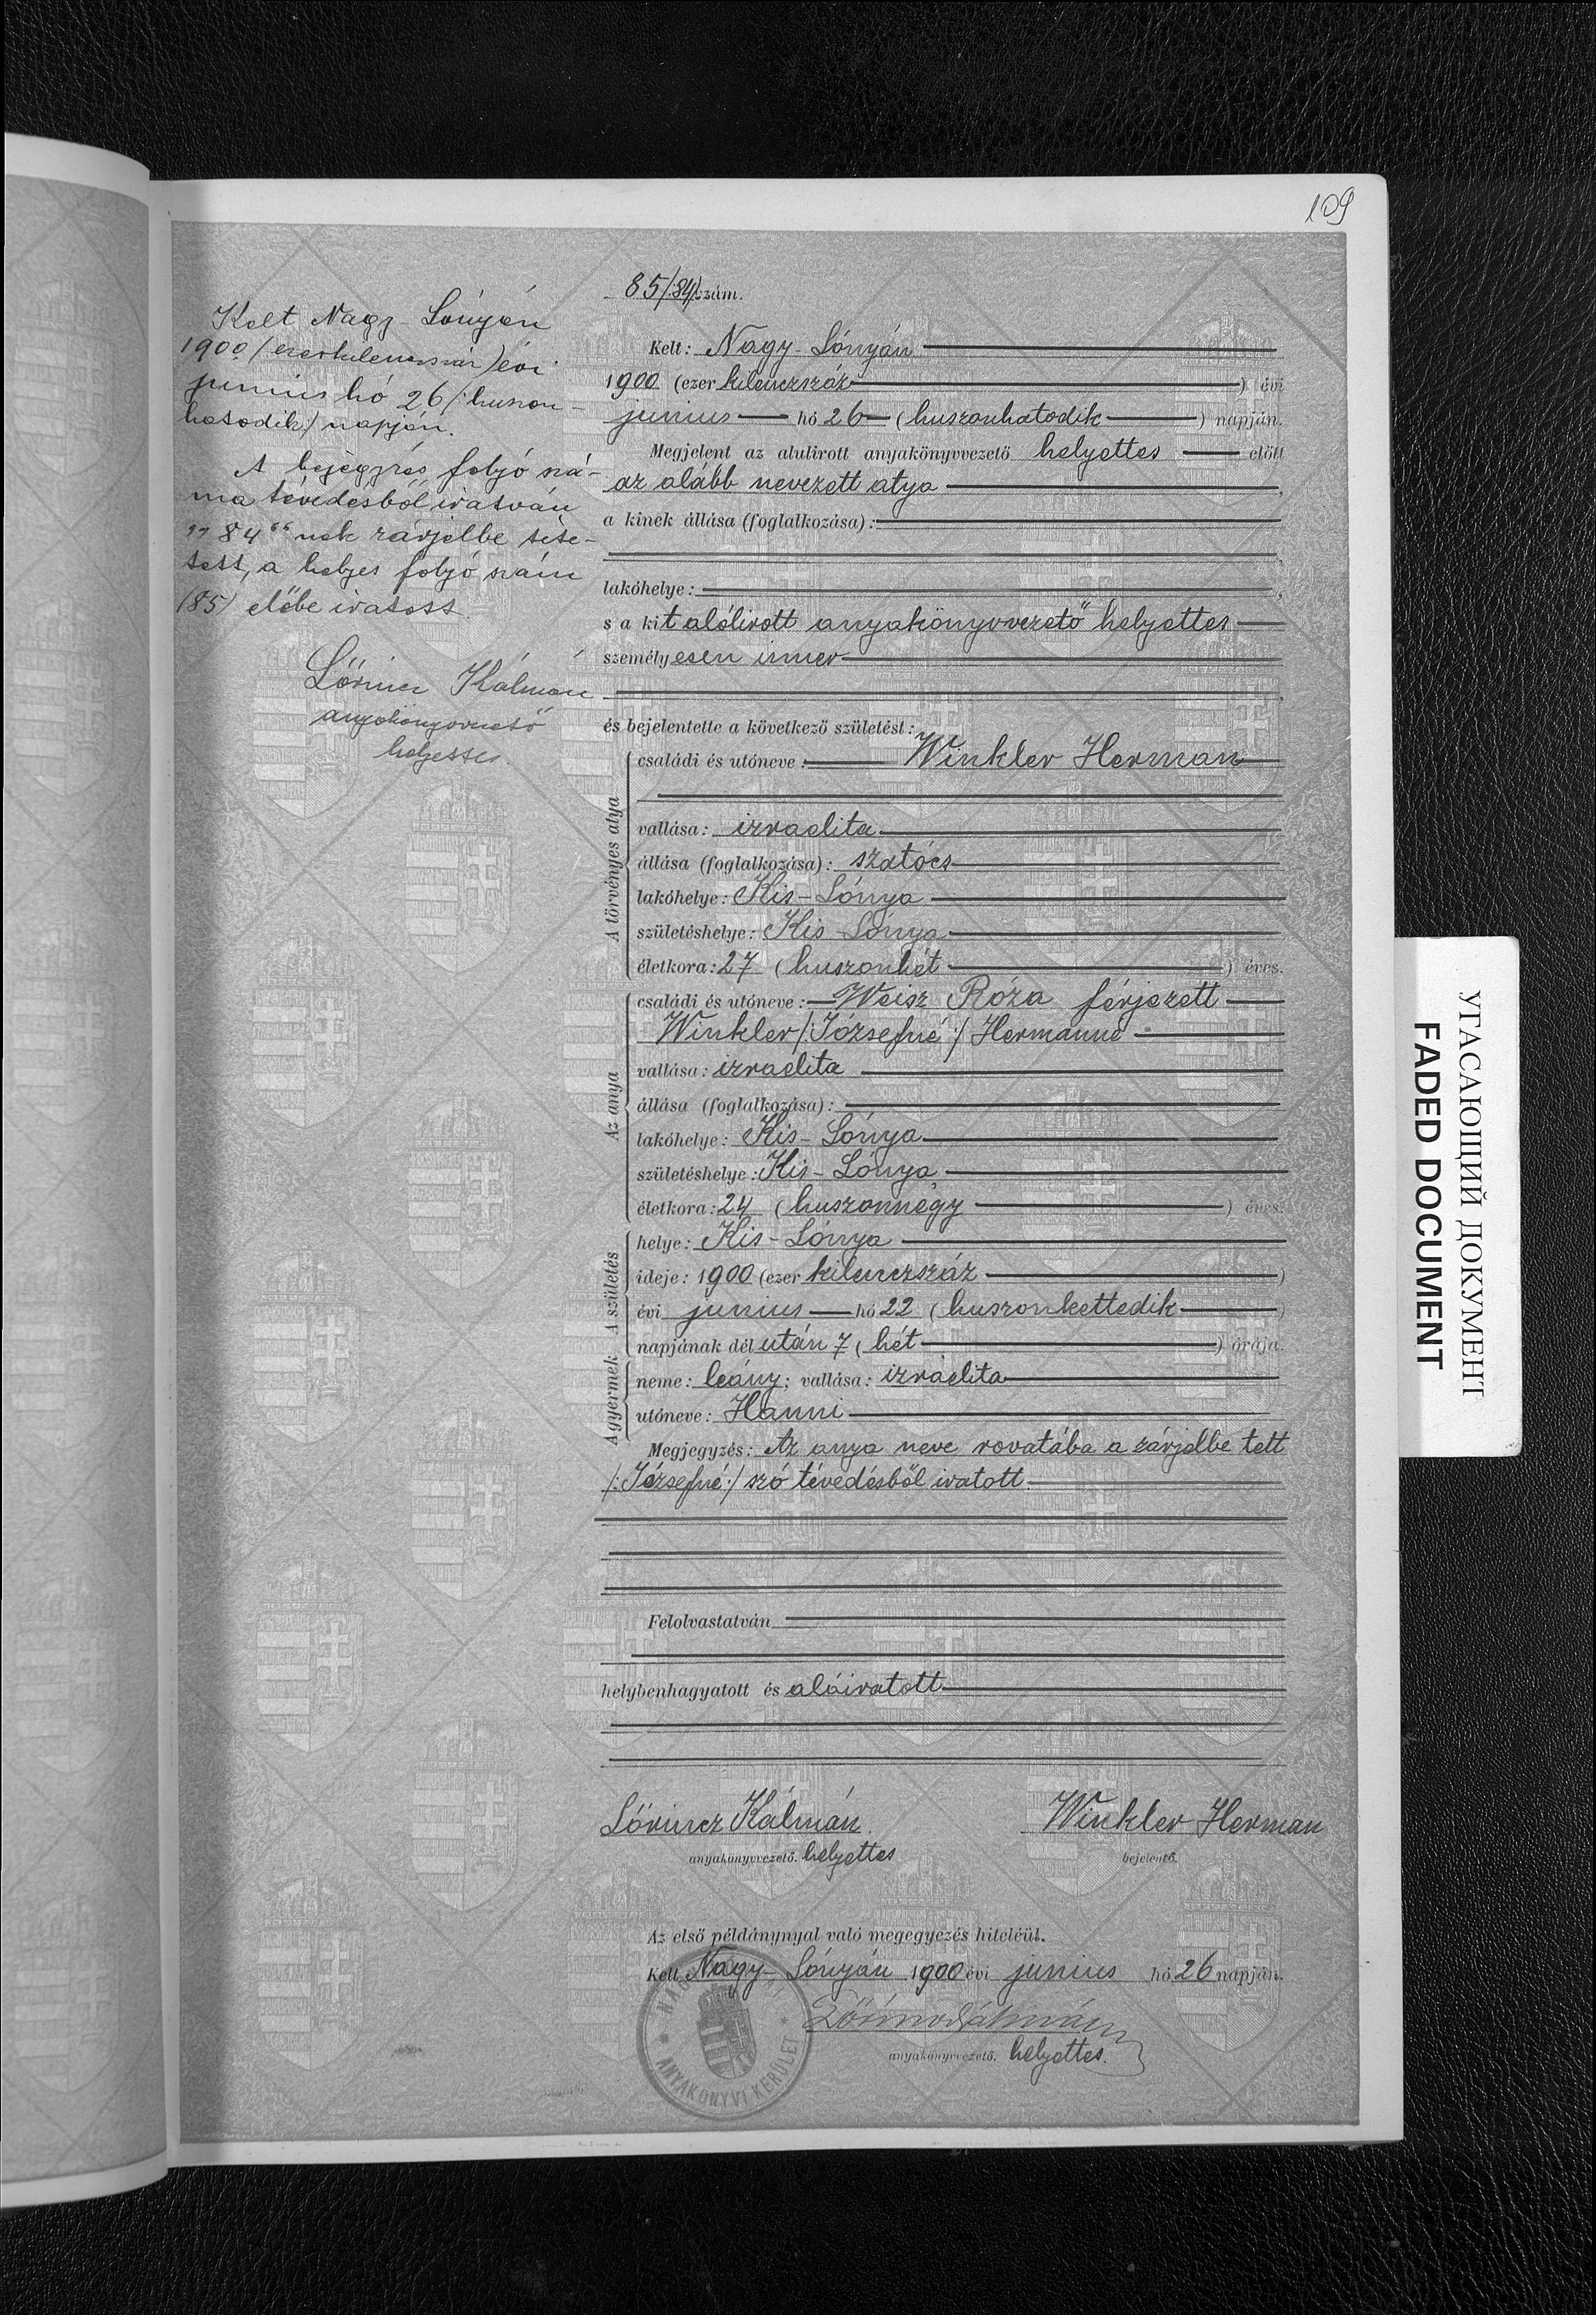 109
Kelt Nagy-Lónyán
1900 (ezerkilencszáz) évi
junius hó 26 /:huszon-
hatodik:/ napján.
A bejegyzés folyó szá-
ma tévedésből iratván
„84“nek zárjelbe téte-
tett, a helyes folyó szám
(85) előbe iratott.
Lőrincz Kálmán
anyakönyvvezető
helyettes.
85/:84:/ szám.
Kelt: Nagy-Lónyán
1900 (ezer kilenczszáz) évi
junius hó 26 (huszonhatodik) napján.
Megjelent az alulirott anyakönyvvezető helyettes előtt
az alább nevezett atya,
a kinek állása (foglalkozása):
lakóhelye:
s a kit alólirott anyakönyvvezető helyettes
személyesen ismer
és bejelentette a következő születést:
A törvényes atya
családi és utóneve: Winkler Herman
vallása: izraelita
állása (foglalkozása): szatócs
lakóhelye: Kis-Lónya
születéshelye: Kis-Lónya
életkora: 27 (huszonhét) éves.
Az anya
családi és utóneve: Weisz Róza férjezett
Winkler /:Józsefné:/ Hermanné
vallása: izraelita
állása (foglalkozása):
lakóhelye: Kis-Lónya
születéshelye: Kis-Lónya
életkora: 24 (huszonnégy) éves.
A születés
helye: Kis-Lónya
ideje: 1900 (ezer kilenczszáz)
évi junius hó 22 (huszonkettedik)
napjának dél után 7 (hét) órája.
A gyermek
neme: leány; vallása: izraelita
utóneve: Hanni
Megjegyzés: Az anya neve rovatába a zárjelbe tett
/:Józsefné:/ szó tévedésből iratott.
Felolvastatván
helybenhagyatott és aláiratott
Lőrincz Kálmán
Winkler Herman
anyakönyvvezető. helyettes
bejelentő.
Az első példánynyal való megegyezés hiteléül.
Kelt Nagy-Lónyán 1900 évi junius hó 26 napján.
Lőrincz Kálmán
anyakönyvvezető. helyettes.
ANYAKÖNYVI KERÜLET
УГАСАЮЩИЙ ДОКУМЕНТ
FADED DOCUMENT